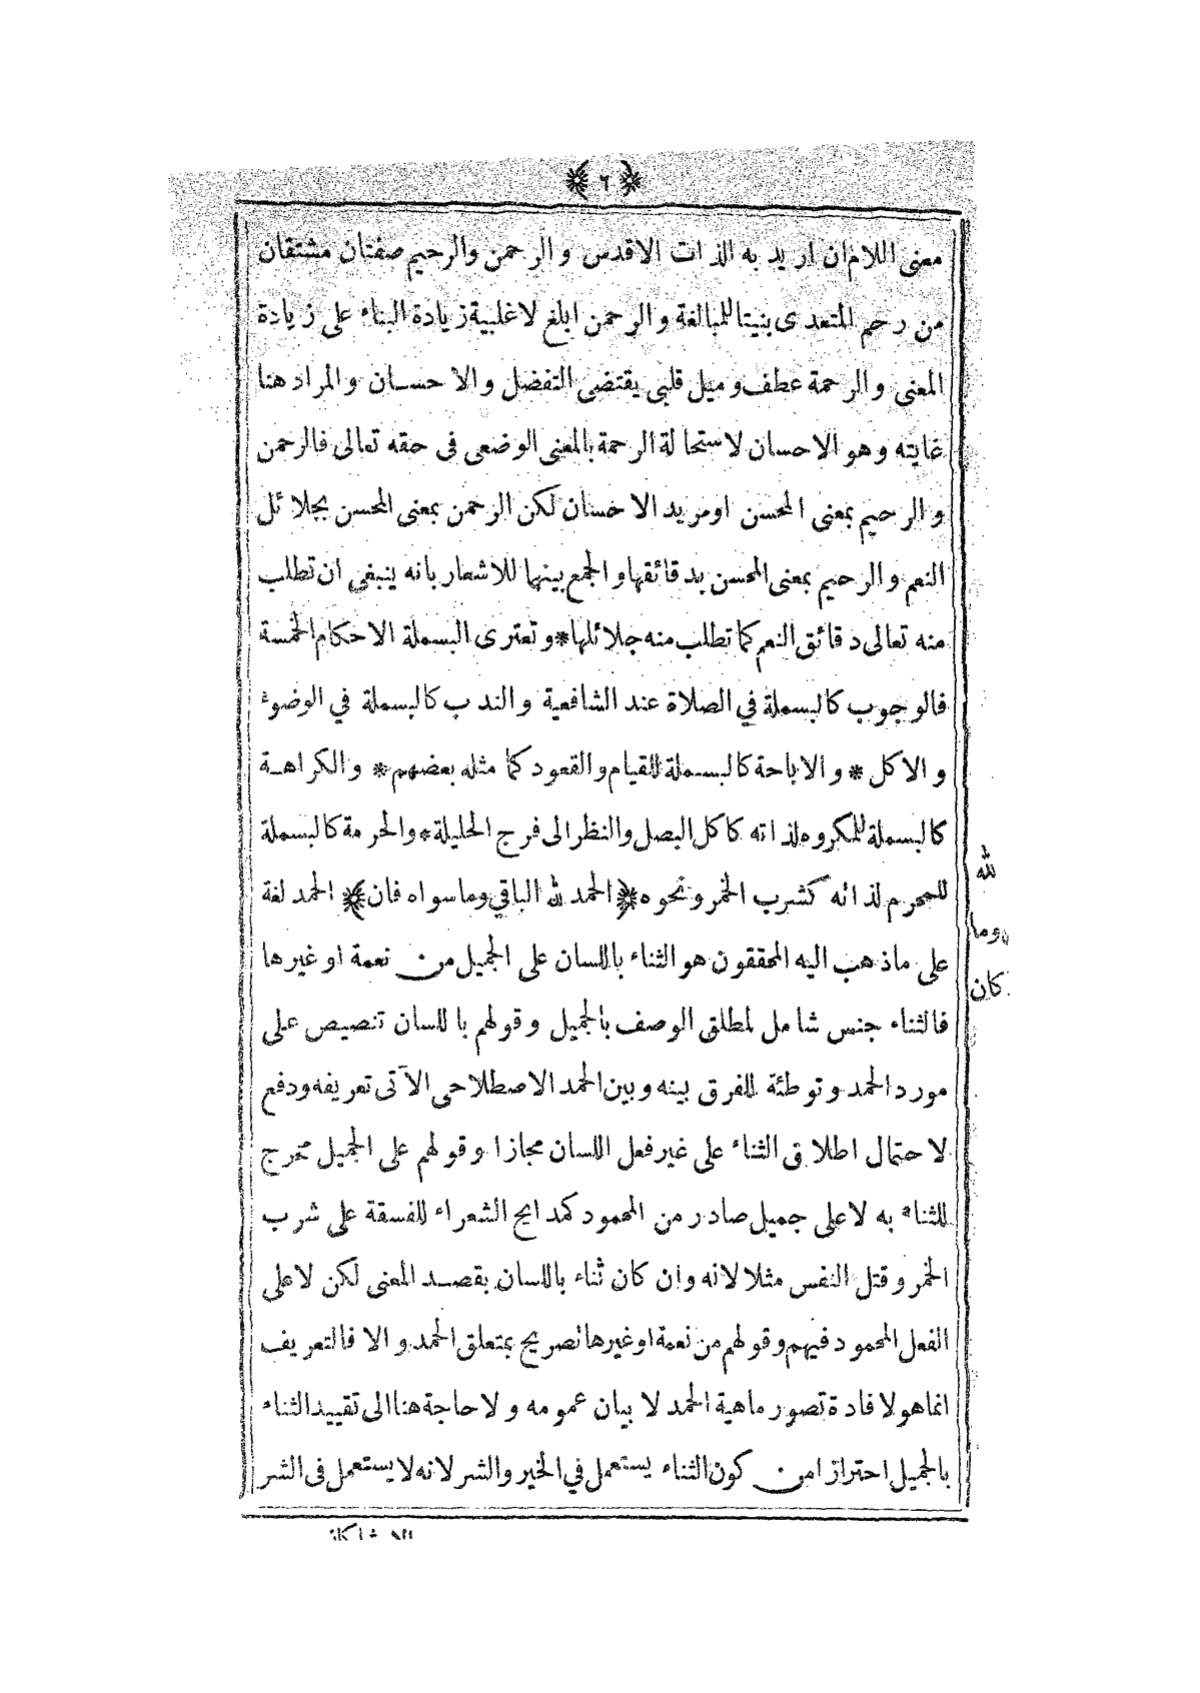 ﴿ ٦ ﴾
معنى اللام ان اريد به الذات الاقدس والرحمن والرحيم صفتان مشتقان
من رحم المتعدى بنيتا للمبالغة والرحمن ابلغ لاغلبية زيادة البناء على زيادة
المعنى والرحمة عطف وميل قلبى يقتضى التفضل والاحسان والمراد هنا
غايته وهو الاحسان لاستحالة الرحمة بالمعنى الوضعى فى حقه تعالى فالرحمن
والرحيم بمعنى المحسن اومريد الاحسان لكن الرحمن بمعنى المحسن بجلائل
النعم والرحيم بمعنى المحسن بدقائقها والجمع بينهما للاشعار بانه ينبغى ان تطلب
منه تعالى دقائق النعم كما تطلب منه جلائلها * وتعترى البسملة الاحكام الخمسة
فالوجوب كالبسملة في الصلاة عند الشافعية والندب كالبسملة في الوضوء
والاكل * والاباحة كالبسملة للقيام والقعود كما مثله بعضهم * والكراهة
كالبسملة للمكروه لذاته كاكل البصل والنظر الى فرج الحليلة * والحرمة كالبسملة
للمحرم لذاته كشرب الخمر ونحوه ﴿ الحمد لله الباقي وماسواه فان ﴾ الحمد لغة
على ماذهب اليه المحققون هو الثناء باللسان على الجميل من نعمة او غيرها
فالثناء جنس شامل لمطلق الوصف بالجميل وقولهم باللسان تنصيص على
مورد الحمد وتوطئة للفرق بينه وبين الحمد الاصطلاحى الآتى تعريفه ودفع
لاحتمال اطلاق الثناء على غير فعل اللسان مجازا وقولهم على الجميل مخرج
للثناء به لاعلى جميل صادر من المحمود كمدايح الشعراء للفسقة على شرب
الخمر وقتل النفس مثلا لانه وان كان ثناء باللسان بقصد المعنى لكن لاعلى
الفعل المحمود فيهم وقولهم من نعمة اوغيرها تصريح بمتعلق الحمد والا فالتعريف
انماهو لافادة تصور ماهية الحمد لا بيان عمومه ولا حاجة هنا الى تقييد الثناء
بالجميل احترازا من كون الثناء يستعمل في الخير والشر لانه لا يستعمل فى الشر
لله
وما
كان